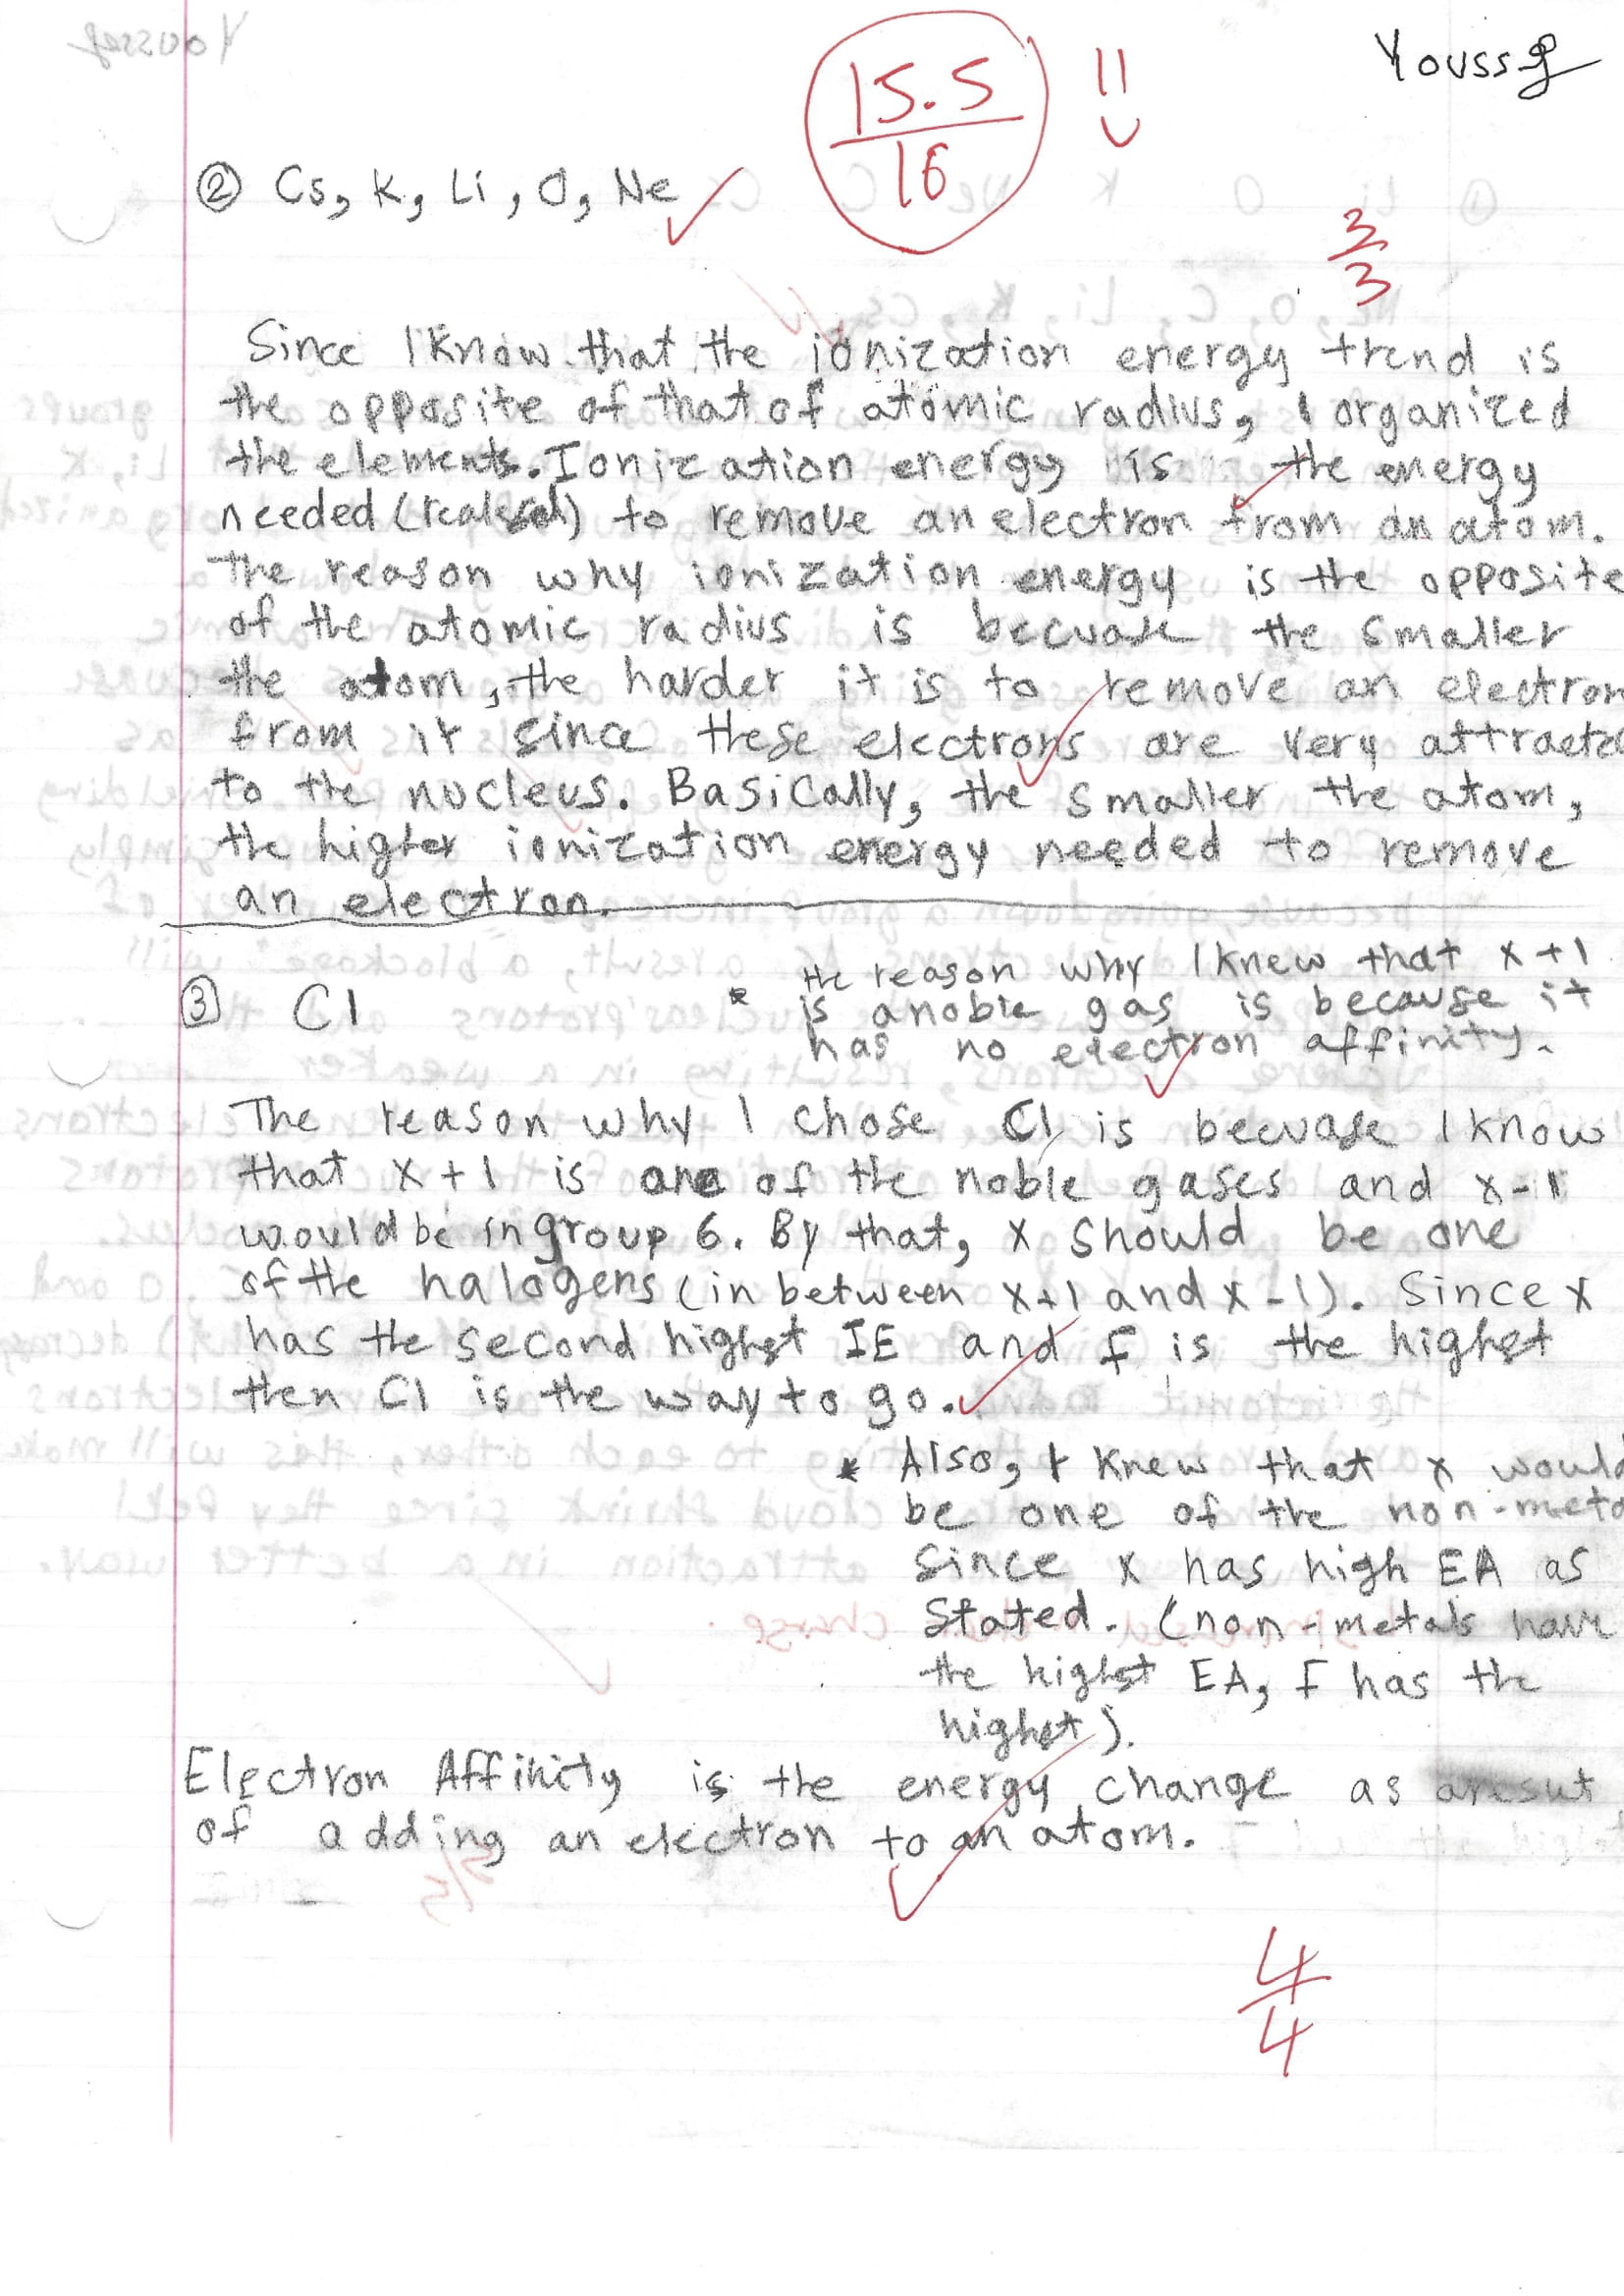 Youssef
15.5
16
② Cs, K, Li, O, Ne
3
3
Since I know that the ionization energy trend is
the opposite of that of atomic radius, I organized
the elements. Ionization energy is the energy
needed ( ) to remove an electron from an atom.
The reason why ionization energy is the opposite
of the atomic radius is becuase the smaller
the atom, the harder it is to remove an electron
from it since these electrons are very attracted
to the nucleus. Basically, the smaller the atom,
the higher ionization energy needed to remove
an electron.
③ Cl
* the reason why I knew that x+1
is a noble gas is because it
has no electron affinity.
The reason why I chose Cl is becuase I know
that x+1 is one of the noble gases and x-1
would be in group 6. By that, x should be one
of the halogens (in between x+1 and x-1). Since x
has the second highest IE and F is the highest
then Cl is the way to go.
* Also, I knew that x would
be one of the non-meta
since x has high EA as
stated. (non-metals have
the highest EA, F has the
highest).
Electron Affinity is the energy change as a result
of adding an electron to an atom.
4
4